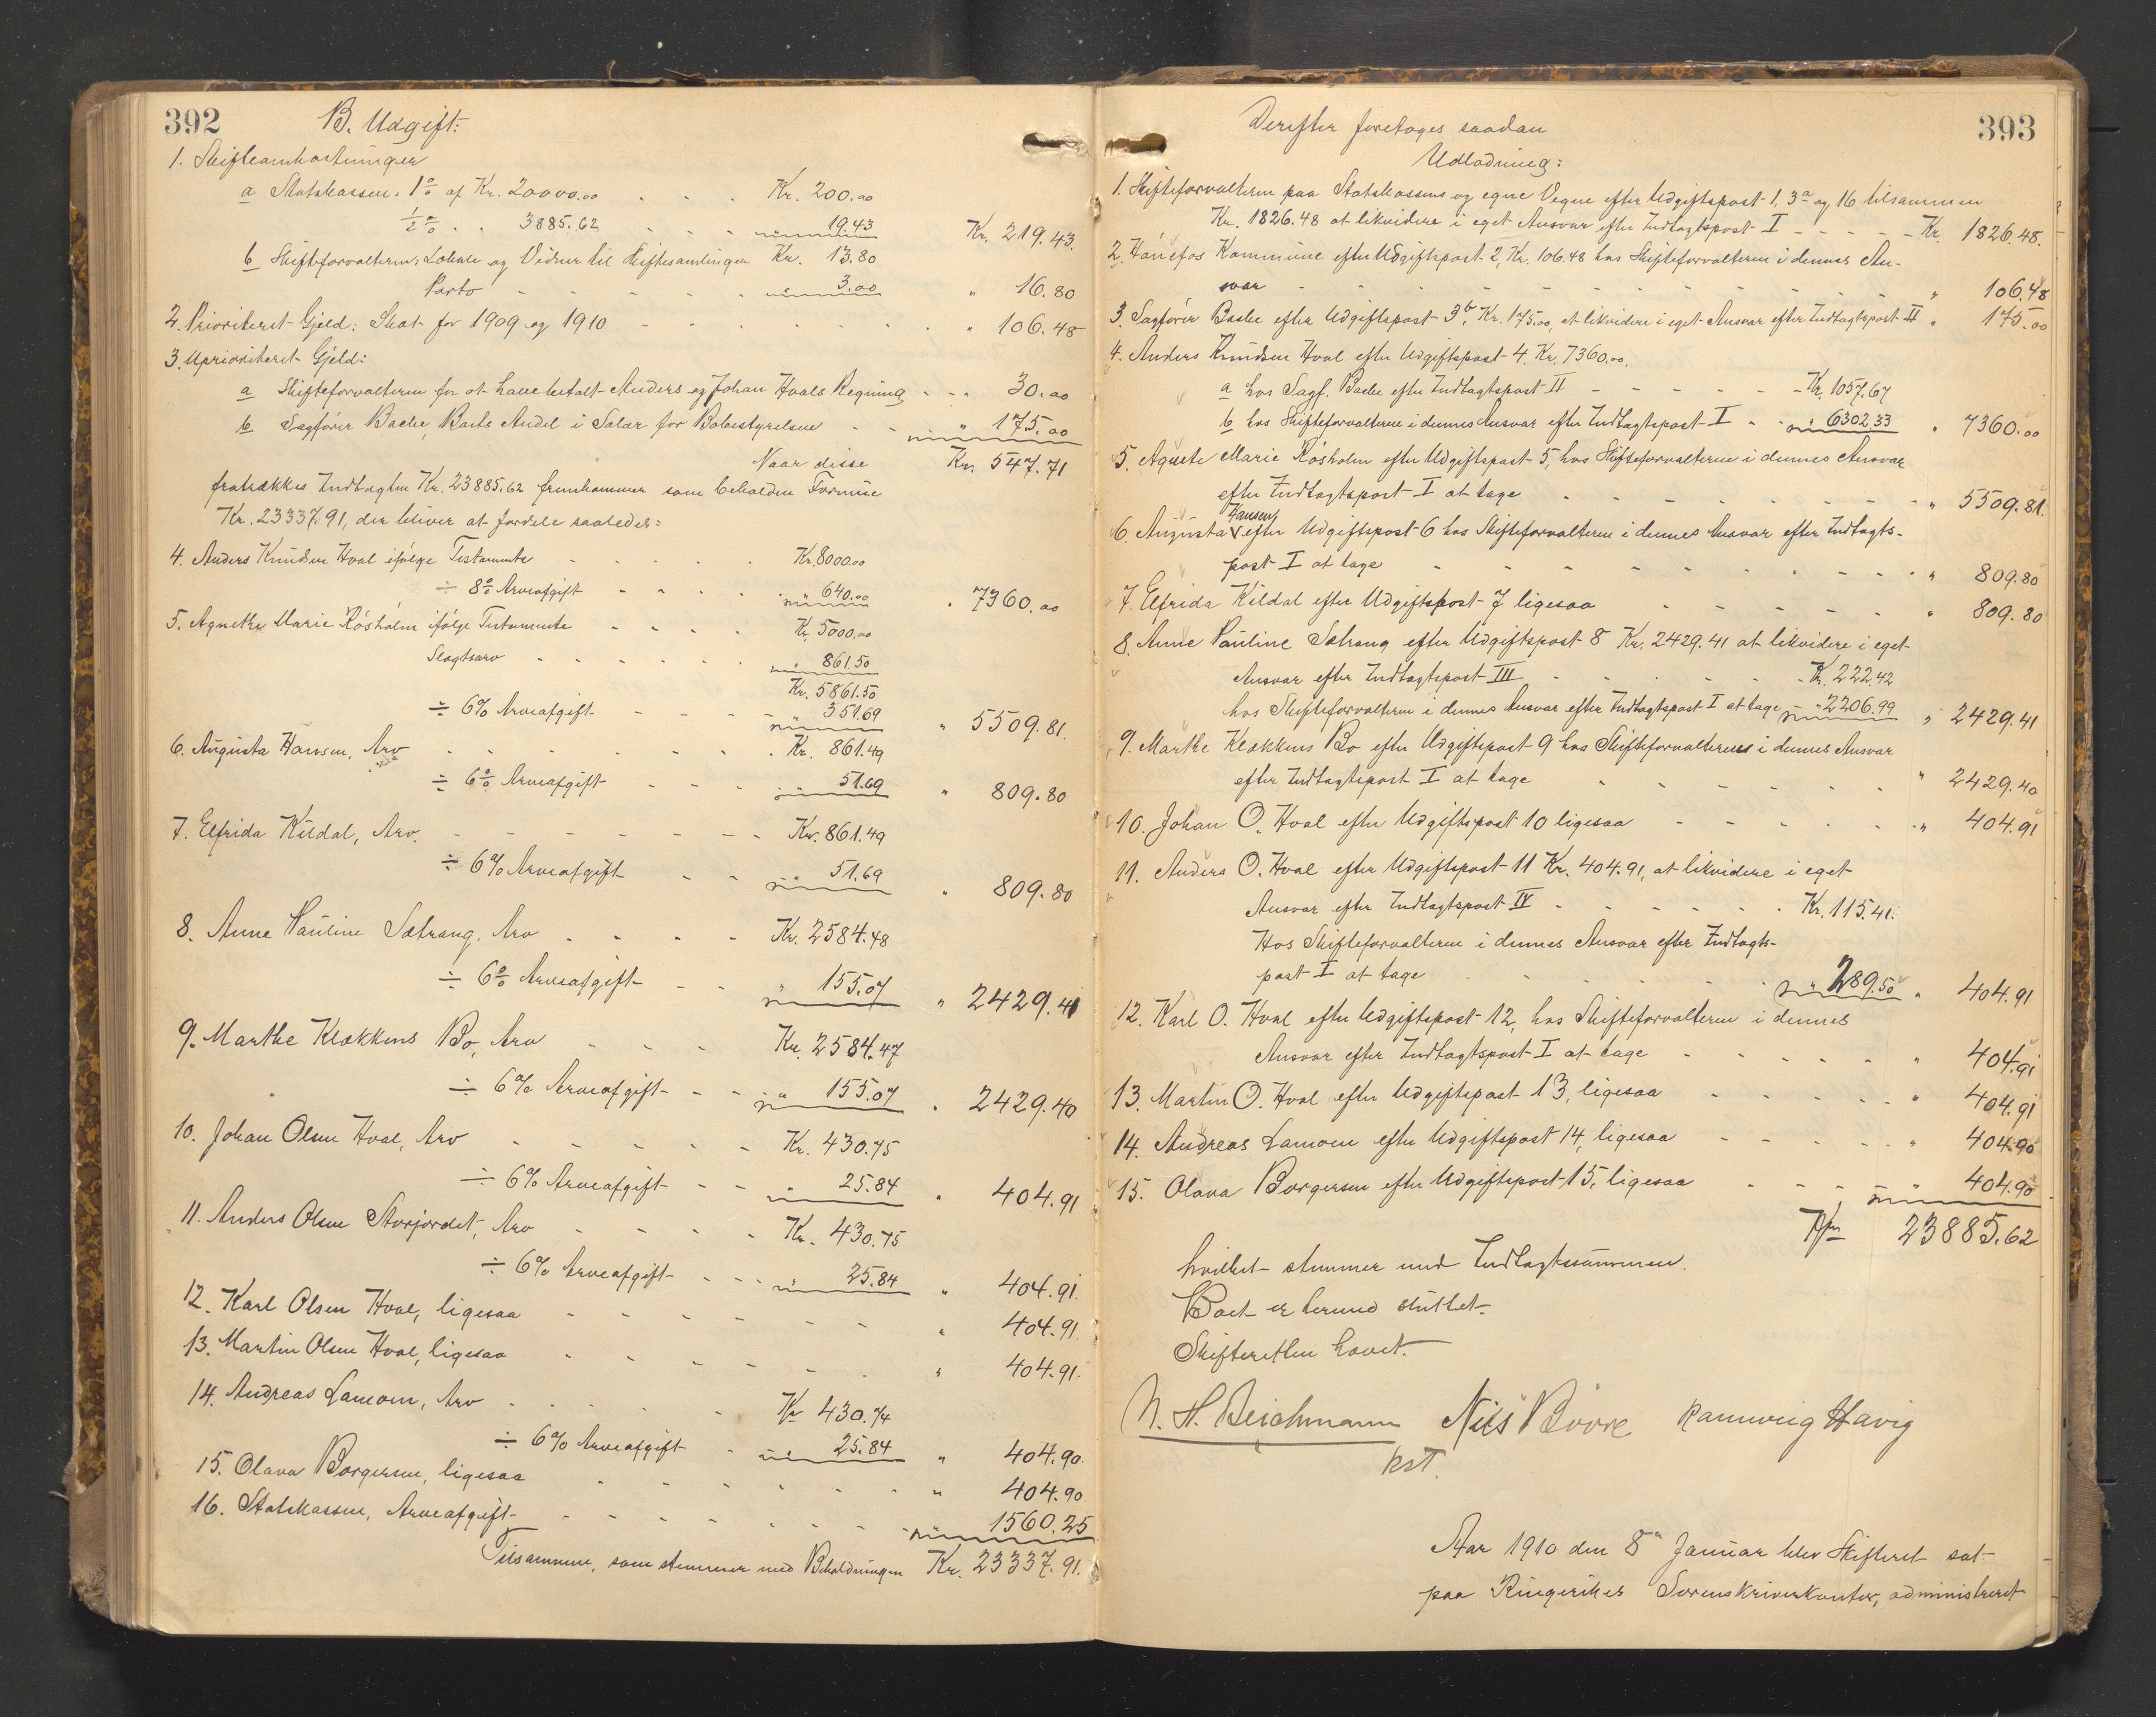 392
B. Udgift:
1. Skifteomkostninger
a Statskassen: 1% af Kr. 20000.00 - - - Kr. 200.00
½% " " 3885.62 - - - " 19.43 Kr. 219.43.
b Skifteforvalteren: Lokale og Vidner til Skiftesamlinger Kr. 13.80
Porto - - - - - " 3.00 " 16.80
2. Prioriteret Gjeld: Skat for 1909 og 1910 - - - - - - - " 106.48
3. Uprioriteret Gjeld:
a Skifteforvalteren for at have betalt Anders og Johan Hvals Regning - - - 30.00
b Sagfører Bache, Boets Andel i Salær for Bobestyrelsen - - " 175.00
Naar disse Kr. 547.71
fratrækkes Indtægten Kr. 23885.62 fremkommer som beholden Formue
Kr. 23337.91, der bliver at fordele saaledes:
4. Anders Knudsen Hval ifølge Testamente - - - - - Kr. 8000.00
÷ 8% Arveafgift - - - - " 640.00 " 7360.00
5. Agnethe Marie Rösholm ifølge Testamente - - - - Kr. 5000.00
Slegtsarv - - - - - - " 861.50
Kr. 5861.50
÷ 6% Arveafgift - - - - " 351.69 " 5509.81.
6. Augusta Hansen, Arv - - - - - - - Kr. 861.49
÷ 6% Arveafgift - - - " 51.69 " 809.80
7. Elfrida Kildal, Arv. - - - - - - - Kr. 861.49
÷ 6% Arveafgift - - " 51.69 " 809.80
8. Anne Pauline Sætrang, Arv - - - - Kr. 2584.48
÷ 6% Arveafgift - - " 155.07 " 2429.41
9. Marthe Klækkens Bo, Arv - - - Kr. 2584.47
÷ 6% Arveafgift - - " 155.07 " 2429.40
10. Johan Olsen Hval, Arv - - - - - Kr. 430.75
÷ 6% Arveafgift - - " 25.84 " 404.91
11. Anders Olsen Storjordet, Arv - - - - Kr. 430.75
÷ 6% Arveafgift - - - " 25.84 " 404.91.
12. Karl Olsen Hval, ligesaa - - - - - - - " 404.91.
13. Martin Olsen Hval, ligesaa - - - - - - " 404.91.
14. Andreas Lamoen, Arv - - - - - Kr 430.74
÷ 6% Arveafgift - " 25.84 " 404.90.
15. Olava Borgersen, ligesaa - - - - - - " 404.90.
16. Statskassen, Arveafgift - - - - - - - - " 1560.25
Tilsammen, som stemmer med Beholdningen Kr. 23337.91.
393
Derefter foretages saadan
Udlodning:
1. Skifteforvalteren paa Statskassens og egne Vegne efter Udgiftspost 1, 3a og 16 tilsammen
Kr. 1826.48 at likvidere i eget Ansvar efter Indtægtspost I - - - - - Kr. 1826.48.
2. Hönefos Kommune efter Udgiftspost 2, Kr. 106.48 hos Skifteforvalteren i dennes An-
svar - - - - - - - - - - - - " 106.48
3. Sagförer Bache efter Udgiftspost 3b, Kr. 175.00, at likvidere i eget Ansvar efter Indtægtspost II " 175.00
4. Anders Knudsen Hval efter Udgiftspost 4. Kr. 7360.00.
a hos Sagf. Bache efter Indtægtspost II - - - - - Kr. 1057.67
b hos Skifteforvalteren i dennes Ansvar efter Indtægtspost I - " 6302.33 " 7360.00
5. Agnete Marie Rösholm efter Udgiftspost 5, hos Skifteforvalteren i dennes Ansvar
efter Indtægtspost I at tage - - - - - - - - - " 5509.81.
6. Augusta Hansen efter Udgiftspost 6 hos Skifteforvalteren i dennes Ansvar efter Indtægts-
post I at tage - - - - - - - - - - " 809.80
7. Elfrida Kildal efter Udgiftspost 7 ligesaa - - - - - " 809.80
8. Anne Pauline Sætrang efter Udgiftspost 8 Kr. 2429.41 at likvidere i eget
Ansvar efter Indtægtspost III - - - - - Kr. 222.42
hos Skifteforvalteren i dennes Ansvar efter Indtægtspost I at tage " 2206.99 " 2429.41
9. Marthe Klækkens Bo efter Udgiftspost 9 hos Skifteforvalteren i dennes Ansvar
efter Indtægtspost I at tage - - - - - - " 2429.40
10. Johan O. Hval efter Udgiftspost 10 ligesaa - - - - - " 404.91
11. Anders O. Hval efter Udgiftspost 11 Kr. 404.91, at likvidere i eget
Ansvar efter Indtægtspost IV - - - - - - Kr. 115.41.
Hos Skifteforvalteren i dennes Ansvar efter Indtægts-
post I at tage - - - - - " 289.50 " 404.91
12. Karl O. Hval efter Udgiftspost 12, hos Skifteforvalteren i dennes
Ansvar efter Indtægtspost I at tage - - - - - " 404.91
13. Martin O. Hval efter Udgiftspost 13, ligesaa - - - - - " 404.91
14. Andreas Lamoen efter Udgiftspost 14, ligesaa - - - - - " 404.90
15. Olava Borgersen efter Udgiftspost 15, ligesaa - - - - " 404.90
Kr 23885.62
hvilket stemmer med Indtægtssummen.
Boet er hermed sluttet.
Skifteretten hævet.
N. H. Beichmann Nils Bövre Rannveig Havig
kst.
Aar 1910 den 8de Januar blev Skifteret sat
paa Ringerikes Sorenskriverkontor, administreret